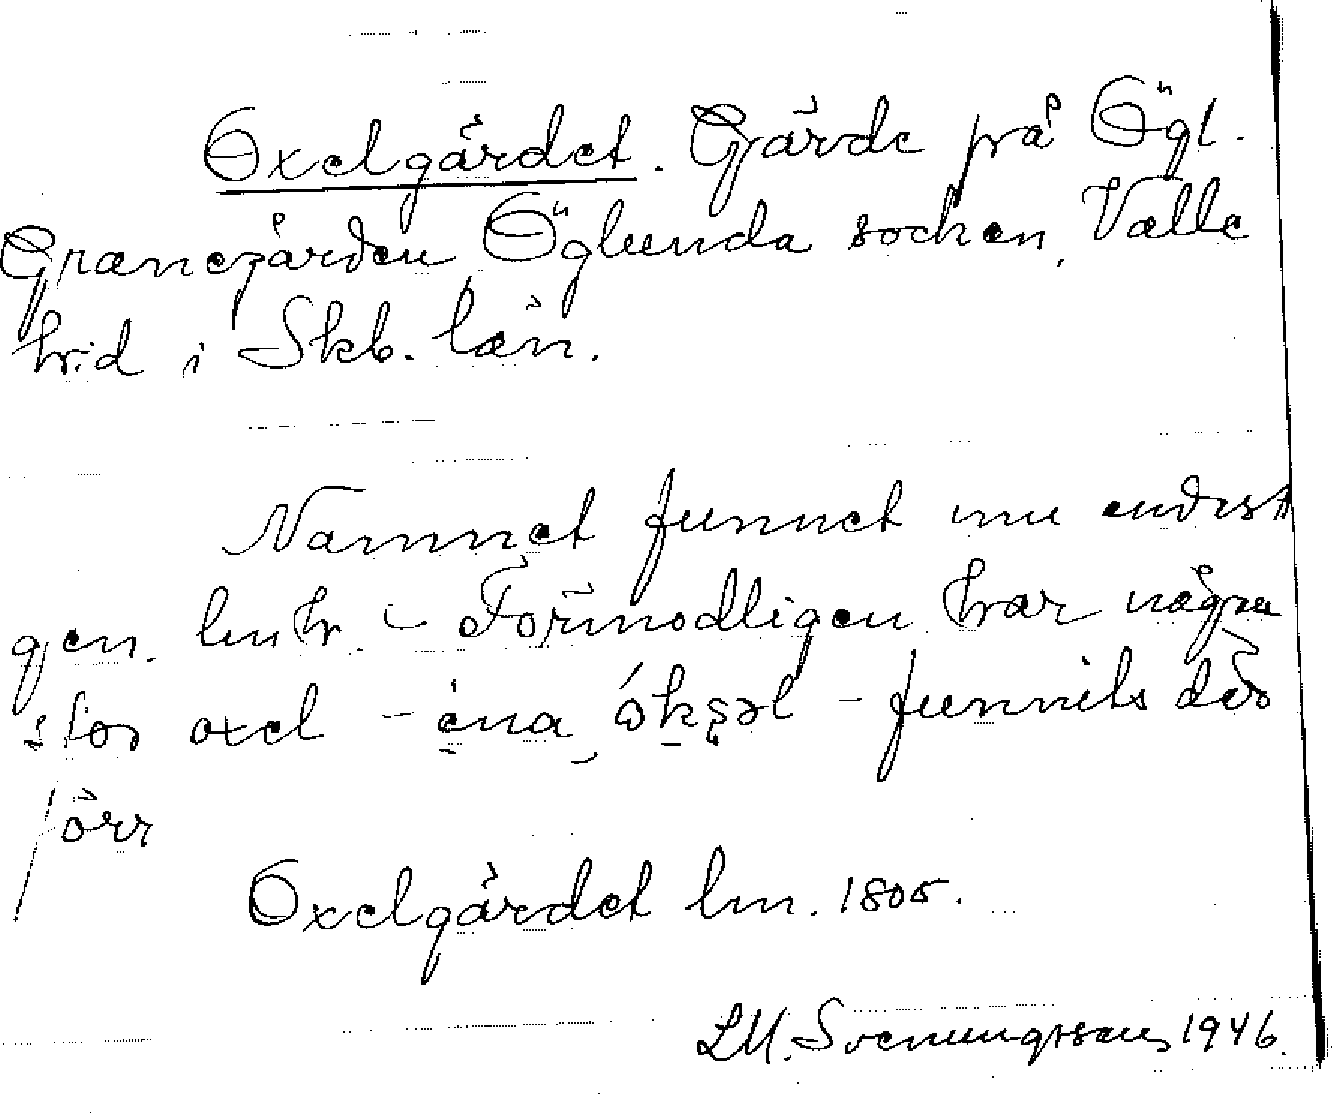 Oxelgärdet. Gärde på Ögl.
Granegården Öglunda socken, Valle
hrd i Skb. län.
Namnet funnet nu endast
gen. lm hr. – Förmodligen har några
stor oxel – ena ókʂəl – funnits där
förr
Oxelgärdet lm. 1805.
LM. Svenungsson 1946.